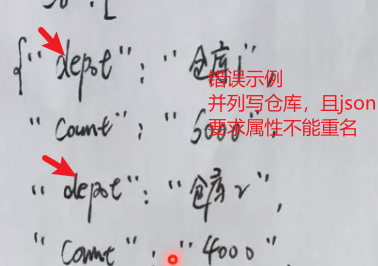 {"depot":"仓库1",
"Count":"6000",
"depot":"仓库2",
"Count":"4000",
错误示例
并列写仓库，且json
要求属性不能重名